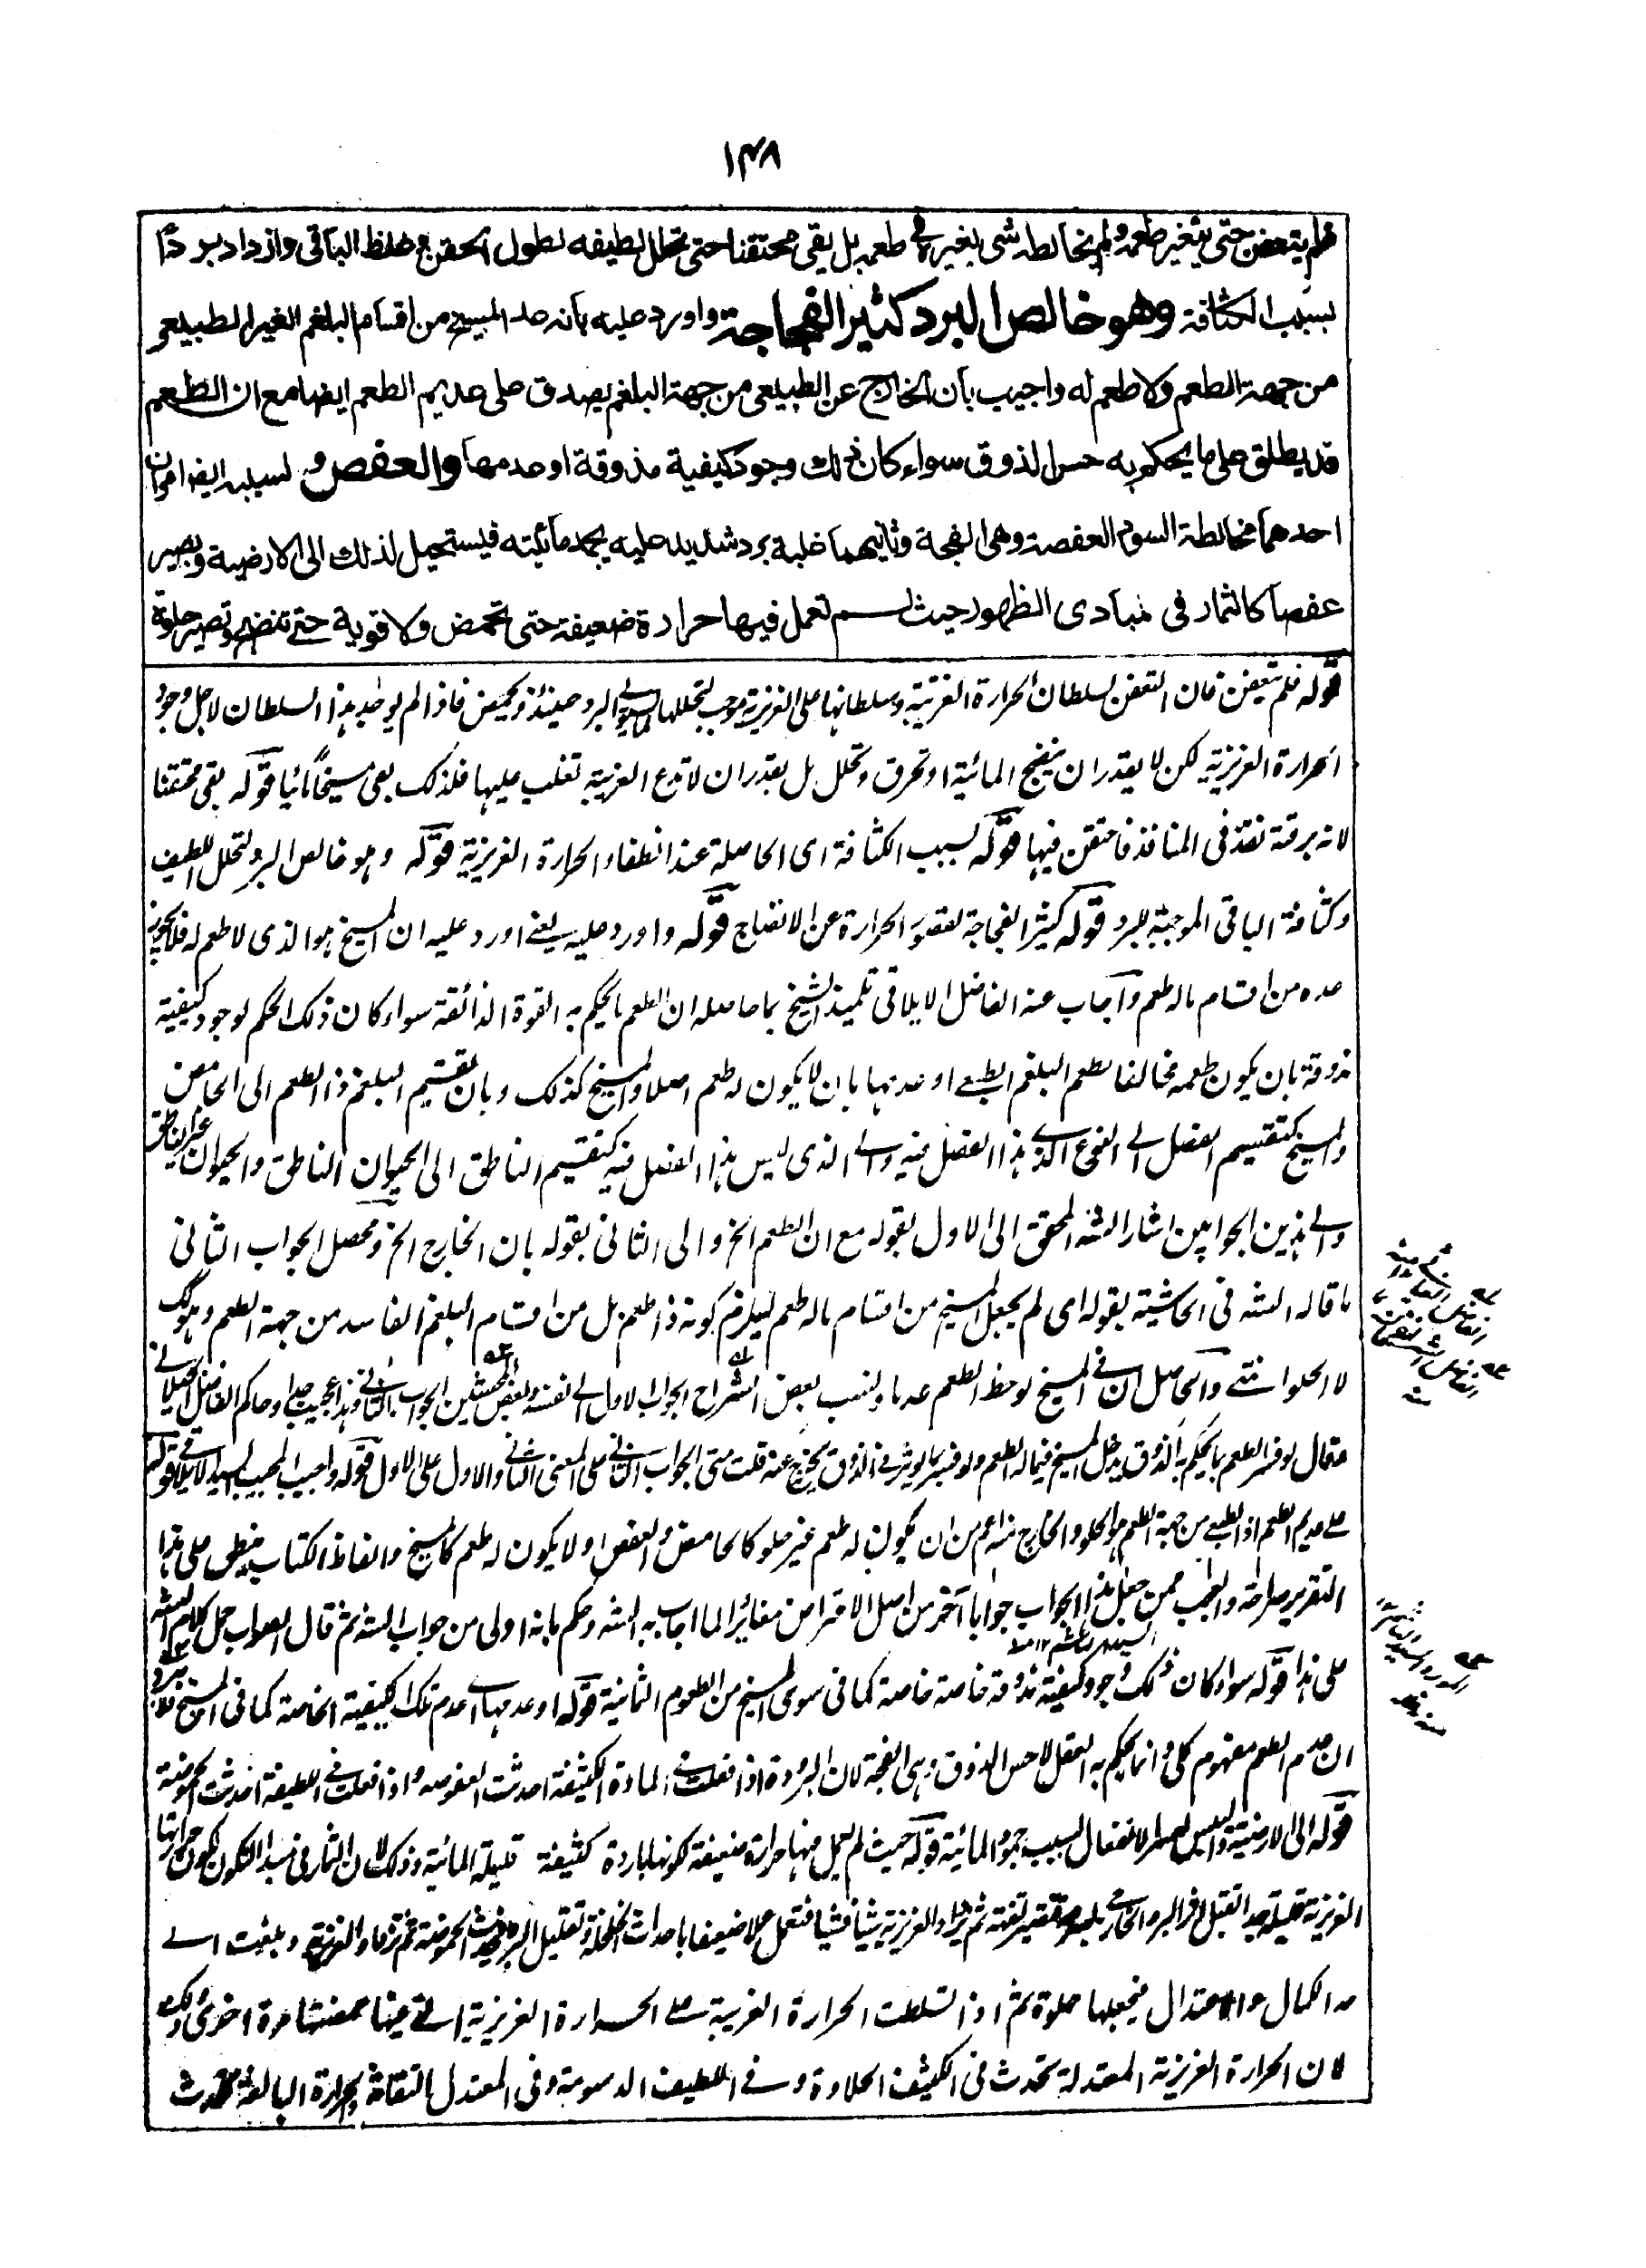 ١٣٨
فلم يتعفن حتى يتغير طعمه ولم يخالطه شئ يغيره في طعمه بل بقى محتقنا حتى تحلل لطيفه لطول الحقن وغلظ الباقى وازداد بردًا
بسبب الكثافة وهو خالص البرد كثير الفجاجة واورد عليه بأنه عد المسيخ من اقسام البلغم الغير الطبيعى
من جهة الطعم ولا طعم له واجيب بأن الخارج عن الطبيعى من جهة البلغم يصدق على عديم الطعم ايضا مع ان الطعم
قد يطلق على ما يحكم به حس الذوق سواء كان ذلك وجود كيفية مذوقة او عدمها والعفص وسببه ايضا امران
احدهما مخالطة السوداء العفصة وهى الفجة وثانيهما غلبة برد شديد عليه يجمد مائيته فيستحيل لذلك الى الارضية ويصير
عفصا كالثمار فى مبادى الظهور حيث لم تعمل فيها حرارة ضعيفة حتى تحمض ولا قوية حتى تنضج وتصير حلوة
قوله فلم يتعفن فان التعفن لسلطان الحرارة الغريبة وسلطانها على الغريزية موجب لتحللها البرد حينئذ ويحمض فاذا لم يوجد هذا السلطان لاجل وجود
الحرارة الغريزية لكن لا يقدر ان ينضج المائية او تحرق وتحلل بل بقدر ان لا تدع الغريبة تغلب عليها فلذلك بقى مسيخًا مائيا قوله بقى محتقنا
لانه برقته نفذ فى المنافذ فاحتقن فيها قوله لسبب الكثافة اى الحاصلة عند انطفاء الحرارة الغريزية قوله وهو خالص البرد لتحلل اللطيف
وكثافة الباقى الموجبة للبرد قوله كثير الفجاجة لقصور الحرارة عن الانضاج قوله واورد عليه يعنى اورد عليه ان المسيخ هو الذى لا طعم له فلا يجوز
عده من اقسام ماله طعم وآجاب عنه الفاضل الايلاقى تلميذ الشيخ بما حاصله ان الطعم ما يحكم به القوة الذائقة سواء كان ذلك الحكم لوجود كيفية
مذوقة بان يكون طعمه مخالفا لطعم البلغم الطبيعى او عدمها بان لا يكون له طعم اصلا والمسيخ كذلك وبان تقسيم البلغم ذا الطعم الى الحامض
والمسيخ كتقسيم الفصل الى النوع الذى هذا الفصل فيه والى الذى ليس هذا الفصل فيه كتقسيم الناطق الى الحيوان الناطق والحيوان غير الناطق
والى هذين الجوابين اشار الشه المحقق الى الاول بقوله مع ان الطعم الخ والى الثانى بقوله بان الخارج الخ ومحصل الجواب الثانى
ما قاله الشه فى الحاشية بقوله اى لم يجعل المسيخ من اقسام ماله طعم ليلزم كونه ذا طعم بل من اقسام البلغم الفاسد من جهة الطعم وهو كذلك
لا الحلو انتهى والحاصل ان فى المسيخ لوحظ الطعم عدما ونسب بعض الشراح الجواب الاول الى نفسه وبعض المحشين الجواب الثانى وهذا عجيب جدا وحاكم الفاضل الجيلانى
فقال لو فسر الطعم بما يحكم به الذوق يدخل المسيخ فيما له الطعم ولو فسر بما يؤثر فى الذوق يخرج عنه قلت متى الجواب الثانى على المعنى الثانى والاول على الاول قوله واجيب المجيب الايلاقى قوله
على عديم الطعم اذ الطبيعى من جهة الطعم هو الحلو والخارج منه اعم من ان يكون له طعم غير حلو كالحامض والعفص او لا يكون له طعم كالمسيخ والفاظ الكتاب ينطق على هذا
التقرير صراحة والعجب ممن جعل هذا الجواب جوابا آخر من اصل الاعتراض مغائرا لما اجاب به الشه وحكم بانه اولى من جواب الشه ثم قال الصواب حمل كلام الشه
على هذا قوله سواء كان ذلك وجود كيفية مذوقة خاصة خاصة كما فى سوى المسيخ من الطعوم الثمانية قوله او عدمها اى عدم تلك الكيفية الخاصة كما فى المسيخ فلا يرد
ان عدم الطعم مفهوم كلى وانما يحكم به العقل لا حس الذوق وهى الفجة لان البرودة اذا فعلت فى المادة الكثيفة احدثت العفوصة واذا فعلت فى اللطيفة احدثت الحموضة
قوله الى الارضية لسبب جمود المائية قوله حيث لم يعمل فيها حرارة ضعيفة لكونها باردة كثيفة قليلة المائية وذلك لان الثمار فى مبدء التكون تكون حرارتها
الغريزية قليلة جدا ثم تزداد الغريزية شيئا فشيئا فتعمل عملا ضعيفا باحداث الحموضة ثم وبلغت الى
حد الكمال والاعتدال فيجعلها حلوة ثم اذا تسلطت الحرارة الغريبة على الحرارة الغريزية التى فيها حمضتها مرة اخرى وذلك
لان الحرارة الغريزية المعتدلة تحدث فى الكثيف الحلاوة وفى اللطيف الدسومة وفى المعتدل التفاهة والحرارة البالغة تحدث